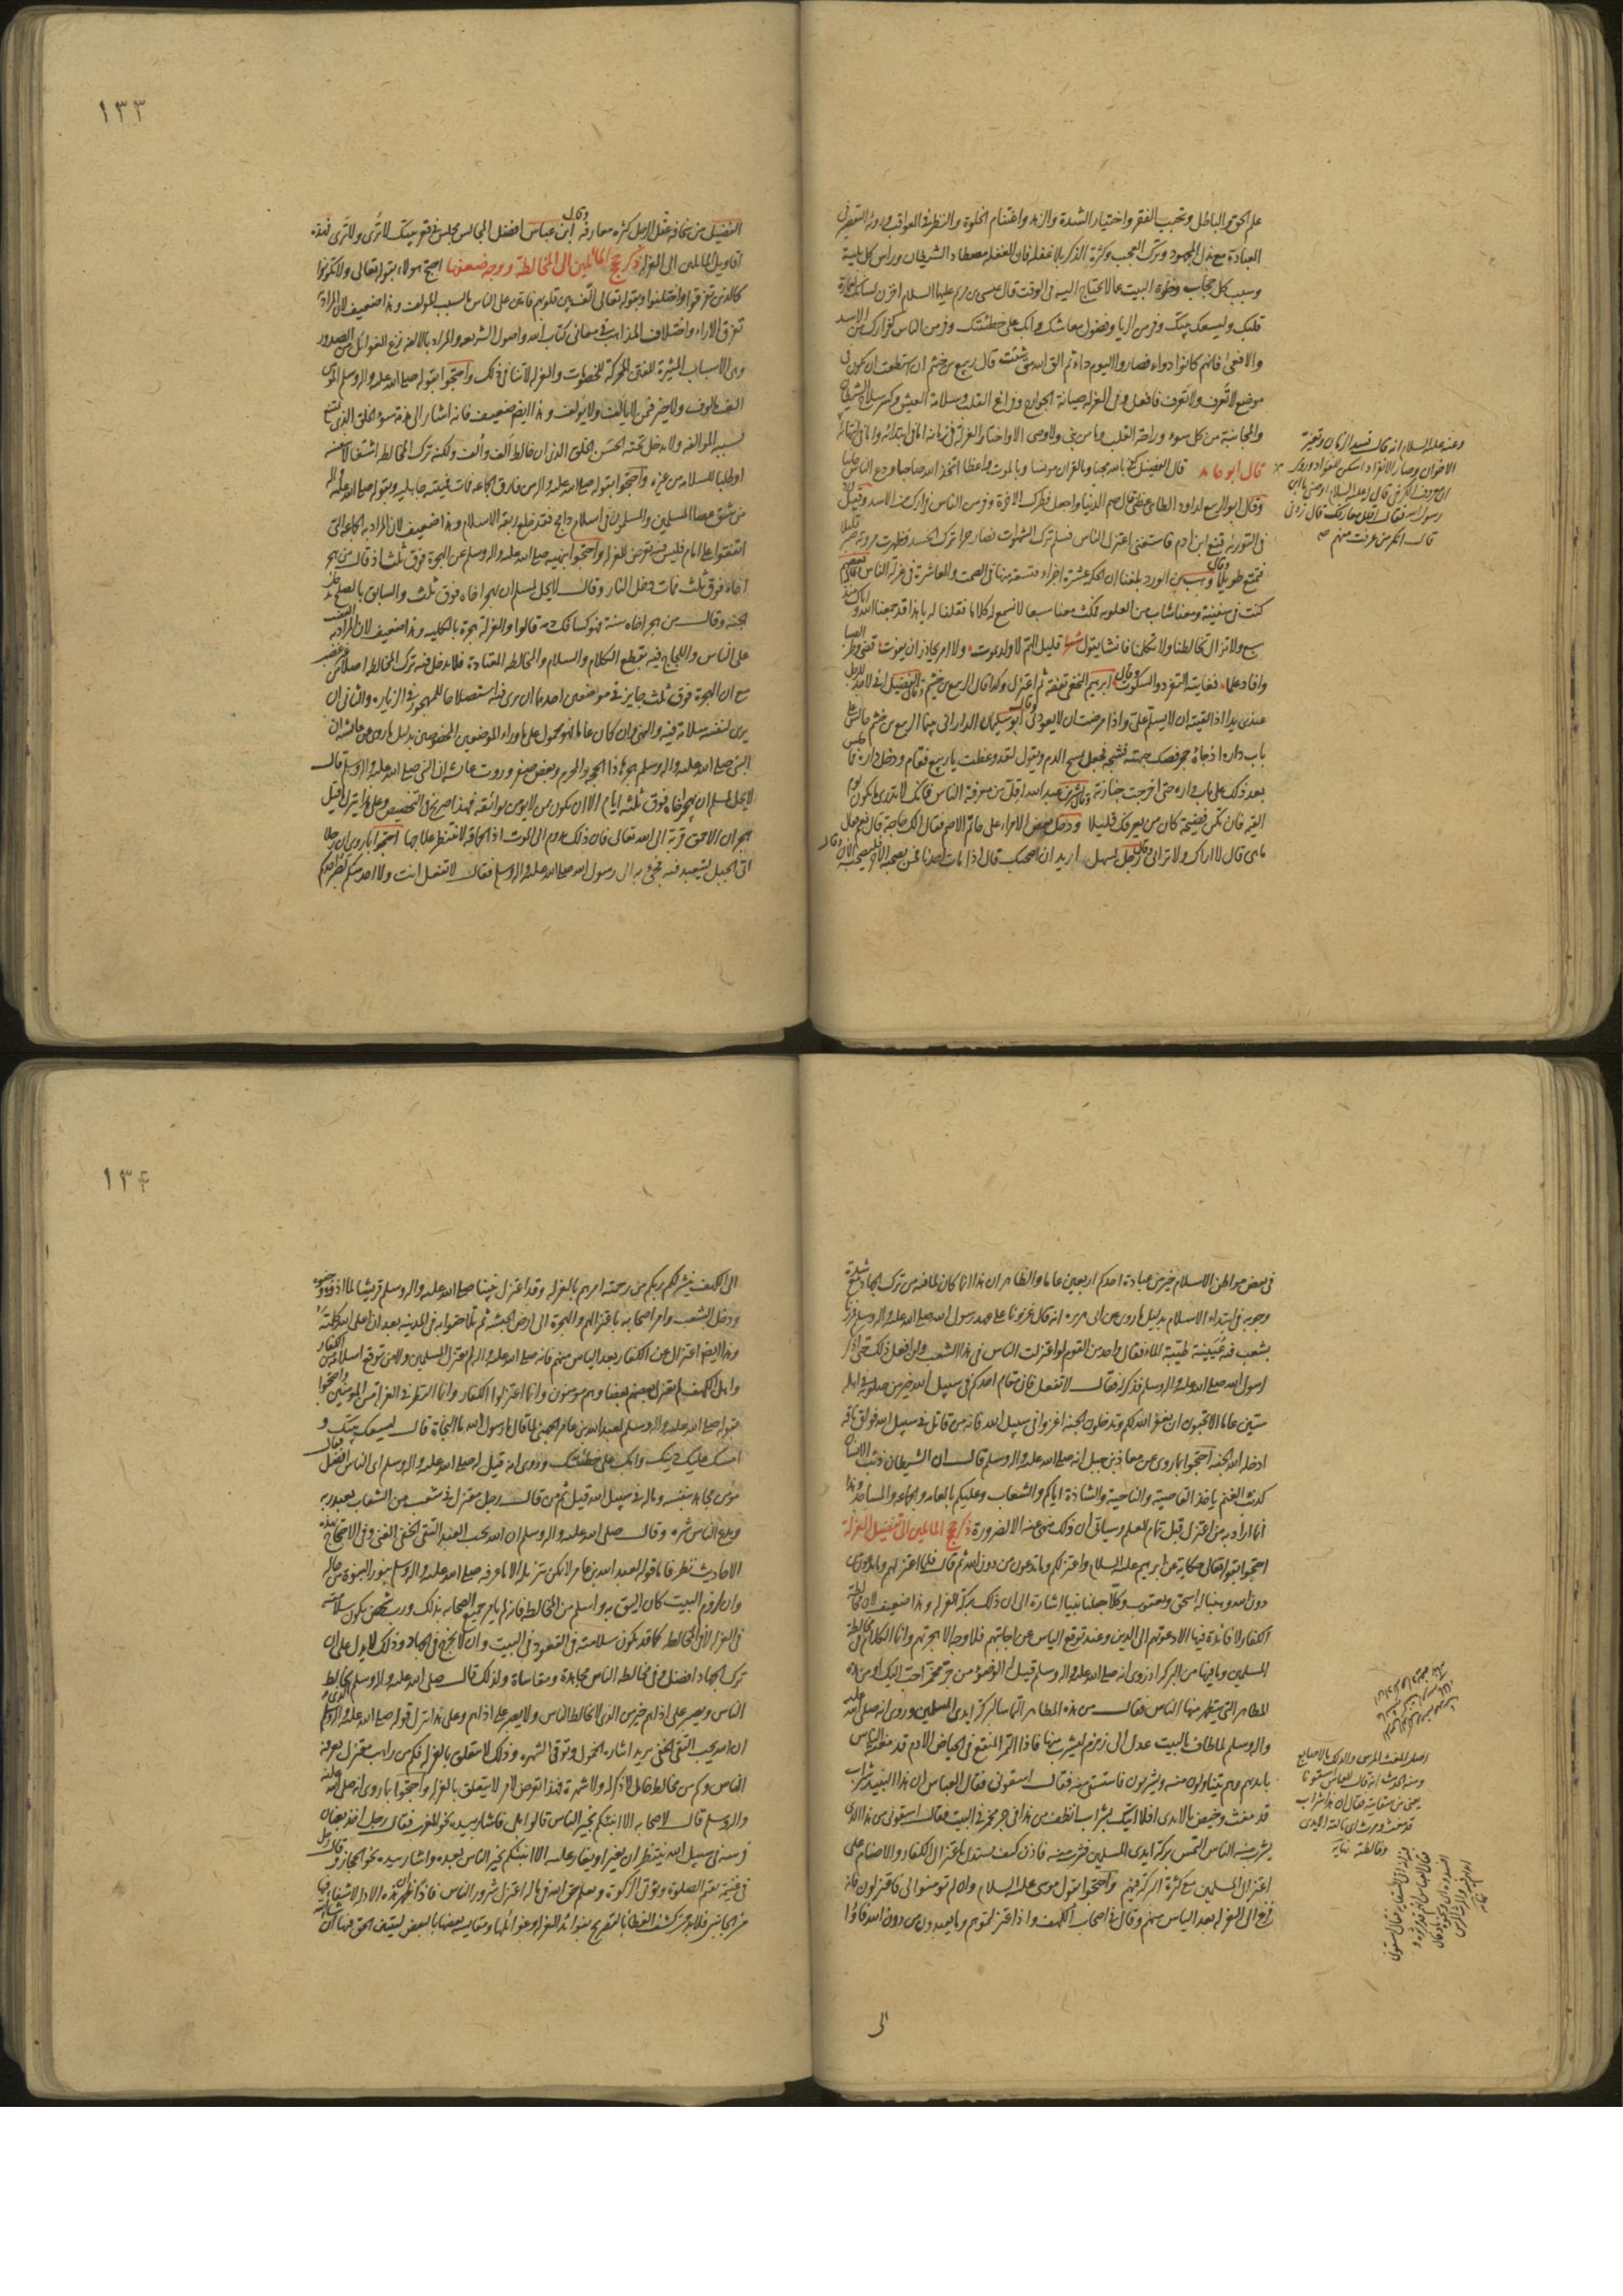 علم الحق والباطل وتحبب الفقر واختيار الشدة والزهد واغتنام الخلوة والنظر فى العواقب ورؤية التقصير فى
العبادة مع بذل المجهود وترك العجب وكثرة الذكر بلا غفلة فان الغفلة مصطاد الشيطان ورأس كل بلية
وسبب كل حجاب وخلوة البيت عما لا يحتاج اليه فى الوقت قال عيسى بن مريم عليهما السلام اخزن لسانك لعمارة
قلبك وليسعك بيتك وفر من الريا وفضول معاشك وابك على خطيئتك وفر من الناس فرارك من الاسد
والافعى فانهم كانوا دواء فصاروا اليوم داء ثم الق الله متى شئت قال ربيع بن خثيم ان استطعت ان تكون فى
موضع لا تُعرف ولا تَعرف فافعل وفى العزلة صيانة الجوارح وفراغ القلب وسلامة العيش وكسر سلاح الشيطان
والمجانبة من كل سوء وراحة القلب وما من نبى ولا وصى الا واختار العزلة فى زمانه اما فى ابتدائه واما فى انتهائه
قال ابو حامد قال الفضيل كفى بالله محبا وبالقران مونسا وبالموت واعظا اتخذ الله صاحبا ودع الناس جانبا
وقال ابو الربيع لداود الطائى عظنى قال صم الدنيا واجعل فطرك الاخرة وفر من الناس فرارك من الاسد وقيل
فى التورية قنع ابن ادم فاستغنى اعتزل الناس فسلم ترك الشهوات فصار حرا ترك الحسد فظهرت مروته صبر قليلا
فتمتع طويلا وقال وهيب بن الورد بلغنا ان الحكمة عشرة اجزاء فتسعة منها فى الصمت والعاشرة فى عزلة الناس وقال بعضهم
كنت فى سفينة ومعنا شاب من العلوية فمكث معنا سبعا لا نسمع له كلاما فقلنا له يا هذا قد جمعنا الله واياك منذ
سبع ولا تزال تخالطنا ولا تكلمنا فانشا يقول شعرا قليل الهم لا ولد يموت ولا امر يحاذر ان يفوت قضى وطر الصبا
وافاد علما فغايته التفرد والسكوت وقال ابرهيم النخعى تفقه ثم اعتزل وكذا قال الربيع بن خثيم وقال الفضيل انى لاجد للرجل
عندى يدا اذا لقيته ان لا يسلم على واذا مرضت ان لا يعودنى وقال ابو سليمان الدارانى بينما الربيع بن خثيم جالس على
باب داره اذ جاءه حجر فصك جبهته فشجه فجعل يمسح الدم ويقول لقد وعظت يا ربيع فقام ودخل داره فما جلس
بعد ذلك على باب داره حتى اخرجت جنازته وقال بشر بن عبد الله اقل من معرفة الناس فانك لا تدرى ما يكون يوم
القيمة فان تكن فضيحة كان من يعرفك قليلا ودخل بعض الامراء على حاتم الاصم فقال الك حاجة قال نعم قال
ما هى قال لا اراك ولا ترانى وقال رجل لسهل اريد ان اصحبك قال اذا مات احدنا فمن يصحب الاخر فليصحبه الان وقال
وعنه عليه السلام انه قال فسد الزمان وتغير
الاخوان وصار الانفراد اسكن للفؤاد وروى
ان معروف الكرخى قال له عليه السلام اوصنى يا ابن
رسول الله فقال اقلل معارفك قال زدنى
قال انكر من عرفت منهم
١٣٣
الفضيل من سخافة عقل الرجل كثرة معارفه وقال ابن عباس افضل المجالس مجلس فى قعر بيتك لا تُرى ولا تَرى فهذه
اقاويل المايلين الى العزلة ذكر حجج المايلين الى المخالطة ووجه ضعفها احتج هولاء بقوله تعالى ولا تكونوا
كالذين تفرقوا واختلفوا وبقوله تعالى الف بين قلوبهم فامتن على الناس بالسبب المولف وهذا ضعيف لان المراد به
تفرق الاراء واختلاف المذاهب فى معانى كتاب الله واصول الشريعة والمراد بالالفة نزع الغوائل من الصدور
وهى الاسباب المثيرة للفتن المحركة للخصومات والعزلة لا تنافى ذلك واحتجوا بقوله صلى الله عليه واله وسلم المؤمن
الف مالوف ولا خير فيمن لا يألف ولا يؤلف وهذا ايضا ضعيف فانه اشار الى مذمة سوء الخلق الذى يمتنع
بسببه المؤالفة ولا يدخل تحته الحسن الخلق الذى ان خالط اَلف واُلف ولكنه ترك المخالطة اشتغالا بنفسه
او طلبا للسلامة من غيره واحتجوا بقوله صلى الله عليه واله من فارق الجماعة مات ميتة جاهلية وبقوله صلى الله عليه واله
من شق عصا المسلمين والمسلمون فى اسلام دامج فقد خلع ربقة الاسلام وهذا ضعيف لان المراد به الجماعة التى
اتفقوا على امام فليس فيه تعرض للعزلة واحتجوا بنهيه صلى الله عليه واله وسلم عن الهجرة فوق ثلث اذ قال من هجر
اخاه فوق ثلث فمات دخل النار وقال لا يحل لمسلم ان يهجر اخاه فوق ثلث والسابق بالصلح يدخل
الجنة وقال من هجر اخاه سنة فهو كسافك دمه قالوا والعزلة هجرة بالكلية وهذا ضعيف لان المراد به الغضب
على الناس واللجاج فيه بقطع الكلام والسلام والمخالطة المعتادة فلا يدخل فيه ترك المخالطة اصلا من غير غضب
مع ان الهجرة فوق ثلث جايز فى موضعين احدهما ان يرى فيه استصلاحا للمهجور فى الزيارة والثانى ان
يرى لنفسه سلامة فيه والنهى وان كان عاما فهو محمول على ما وراء الموضعين المخصوصين بدليل ما روى عن عائشة ان
النبى صلى الله عليه واله وسلم هجرها ذا الحجة والمحرم وبعض صفر وروت عائشة ان النبى صلى الله عليه واله وسلم قال
لا يحل لمسلم ان يهجر اخاه فوق ثلثة ايام الا ان يكون ممن لا يؤمن بوائقه فهذا صريح فى التخصيص وعلى هذا ينزل ما قيل
هجران الاحمق قربة الى الله تعالى فان ذلك يدوم الى الموت اذ الحماقة لا ننتظر علاجها احتجوا بما روى ان رجلا
اتى الجبل ليتعبد فيه فجئ به الى رسول الله صلى الله عليه واله وسلم فقال لا تفعل انت ولا احد منكم لصبر احدكم
فى بعض مواطن الاسلام خير من عبادة احدكم اربعين عاما والظاهر ان هذا انما كان لما فيه من ترك الجهاد مع شدة
وجوبه فى ابتداء الاسلام بدليل ما روى عن ابى هريرة انه قال غزونا على عهد رسول الله صلى الله عليه واله وسلم فمررنا
بشعب فيه عُيَينة طيبة الماء فقال واحد من القوم لو اعتزلت الناس فى هذا الشعب ولن افعل ذلك حتى اذكر
لرسول الله صلى الله عليه واله وسلم فذكر له فقال لا تفعل فان مقام احدكم فى سبيل الله خير من صلوته فى اهله
ستين عاما الا تحبون ان يغفر الله لكم وتدخلون الجنة اغزوا فى سبيل الله فانه من قاتل فى سبيل الله فواق ناقة
ادخله الله الجنة احتجوا بما روى عن معاذ بن جبل انه صلى الله عليه واله وسلم قال ان الشيطان ذئب الانسان
كذئب الغنم ياخذ القاصية والناحية والشاذة اياكم والشعاب وعليكم بالعامة والجماعة والمساجد وهذا
انما اراد به من اعتزل قبل تمام العلم وسياتى ان ذلك منهى عنه الا لضرورة ذكر حجج المايلين الى تفضيل العزلة
احتجوا بقوله تعالى حكاية عن ابرهيم عليه السلام واعتزلكم وما تدعون من دون الله ثم قال فلما اعتزلهم وما يعبدون
من دون الله وهبنا له اسحق ويعقوب وكلا جعلنا نبيا اشارة الى ان ذلك ببركة العزلة وهذا ضعيف لان مخالطة
الكفار لا فائدة فيها الا دعوتهم الى الدين وعند توقع الياس عن اجابتهم فلا وجه الا هجرتهم وانما الكلام فى مخالطة
المسلمين وما فيها من البركة اذ روى انه صلى الله عليه واله وسلم قيل له الوضوء من جرّ مخمّر احب اليك او من هذه
المطاهر التى يتطهر منها الناس فقال من هذه المطاهر التماسا لبركة ايدى المسلمين وروى انه صلى الله عليه
واله وسلم لما طاف بالبيت عدل الى زمزم ليشرب منها فاذا التمر المنقع فى الحياض الادم قد مغثه الناس
بايديهم وهم يتناولون منه ويشربون فاستسقى منه فقال اسقونى فقال العباس ان هذا النبيذ شراب
قد مغث وخيض بالايدى افلا اتيك بشراب انظف من هذا فى جر مخمر فى البيت فقال اسقونى من هذا الذى
يشرب منه الناس التمس بركة ايدى المسلمين فشرب منه فاذن كيف يستدل باعتزال الكفار والاصنام على
اعتزال المسلمين مع كثرة البركة فيهم واحتجوا بقول موسى عليه السلام وان لم تؤمنوا لى فاعتزلون فانه
فزع الى العزلة بعد الياس منهم وقال فى اصحاب الكهف واذ اعتزلتموهم وما يعبدون من دون الله فاؤا
الى
اصل المغث المرس والدلك بالاصابع
ومنه الحديث انه قال للعباس اسقونا
يعنى من سقايته فقال ان هذا شراب
قد مغث ومرث اى نالته الايدى
وخالطته نهاية
١٣٤
الى الكهف ينشر لكم ربكم من رحمته امرهم بالعزلة وقد اعتزل نبينا صلى الله عليه واله وسلم قريشا لما اذوه وجفوه
ودخل الشعب وامر اصحابه باعتزالهم والهجرة الى ارض الحبشة ثم تلاحقوا به فى المدينة بعد ان اعلى الله كلمته
وهذا ايضا اعتزال عن الكفار بعد الياس منهم فانه صلى الله عليه واله لم يعتزل المسلمين ولا من توقع اسلامه من الكفار
واهل الكهف لم يعتزل بعضهم بعضا وهم مومنون وانما اعتزلوا الكفار وانما النظر فى العزلة من المؤمنين واحتجوا
بقوله صلى الله عليه واله وسلم لعبد الله بن عامر الجهنى لما قال يا رسول الله ما النجاة قال ليسعك بيتك و
امسك عليك دينك وابك على خطيئتك وروى انه قيل له صلى الله عليه واله وسلم اى الناس افضل فقال
مؤمن مجاهد بنفسه وماله فى سبيل الله قيل ثم من قال رجل معتزل فى شعب من الشعاب يعبد ربه
ويدع الناس شره وقال صلى الله عليه واله وسلم ان الله يحب العبد التقى الخفى الغنى وفى الاحتجاج بهذه
الاحاديث نظر فاما قوله لعبد الله بن عامر لا يمكن تنزيله الا ما عرفه صلى الله عليه واله وسلم بنور النبوة من حاله
وان لزوم البيت كان اليق به واسلم من المخالطة فانه لم يامر جميع الصحابة بذلك ورب شخص يكون سلامته
فى العزلة لا فى المخالطة كما قد يكون سلامته فى القعود فى البيت وان لا يخرج فى الجهاد وذلك لا يدل على ان
ترك الجهاد افضل وفى مخالطة الناس مجاهدة ومقاساة ولذلك قال صلى الله عليه واله وسلم الذى يخالط
الناس ويصبر على اذاهم خير من الذى لا يخالط الناس ولا يصبر على اذاهم وعلى هذا تنزل قوله صلى الله عليه واله وسلم
ان الله يحب التقى الخفى يريد اشارة الخمول وتوقى الشهرة وذلك لا يتعلق بالعزلة فكم من راهب معتزل يعرفه
الناس وكم من مخالط خامل لا ذكر له ولا شهرة فهذا تعرض لامر لا يتعلق بالعزلة واحتجوا بما روى انه صلى الله عليه
واله وسلم قال لاصحابه الا انبئكم بخير الناس قالوا بلى فاشار بيده نحو المغرب فقال رجل اخذ بعنان
فرسه فى سبيل الله ينتظر ان يغير او يغار عليه الا انبئكم بخير الناس بعده واشار بيده نحو الحجاز وقال رجل
فى غنيمة يقيم الصلوة ويؤتى الزكوة ويعلم حق الله فى ماله اعتزل شرور الناس فاذا ظهر ان هذه الادلة لا شفاء فيها
من الجانبين فلا بد من كشف الغطاء بالتصريح بفوائد العزلة وغوائلها ومقايسة بعضها بالبعض ليتبين الحق فيها ان شاء الله